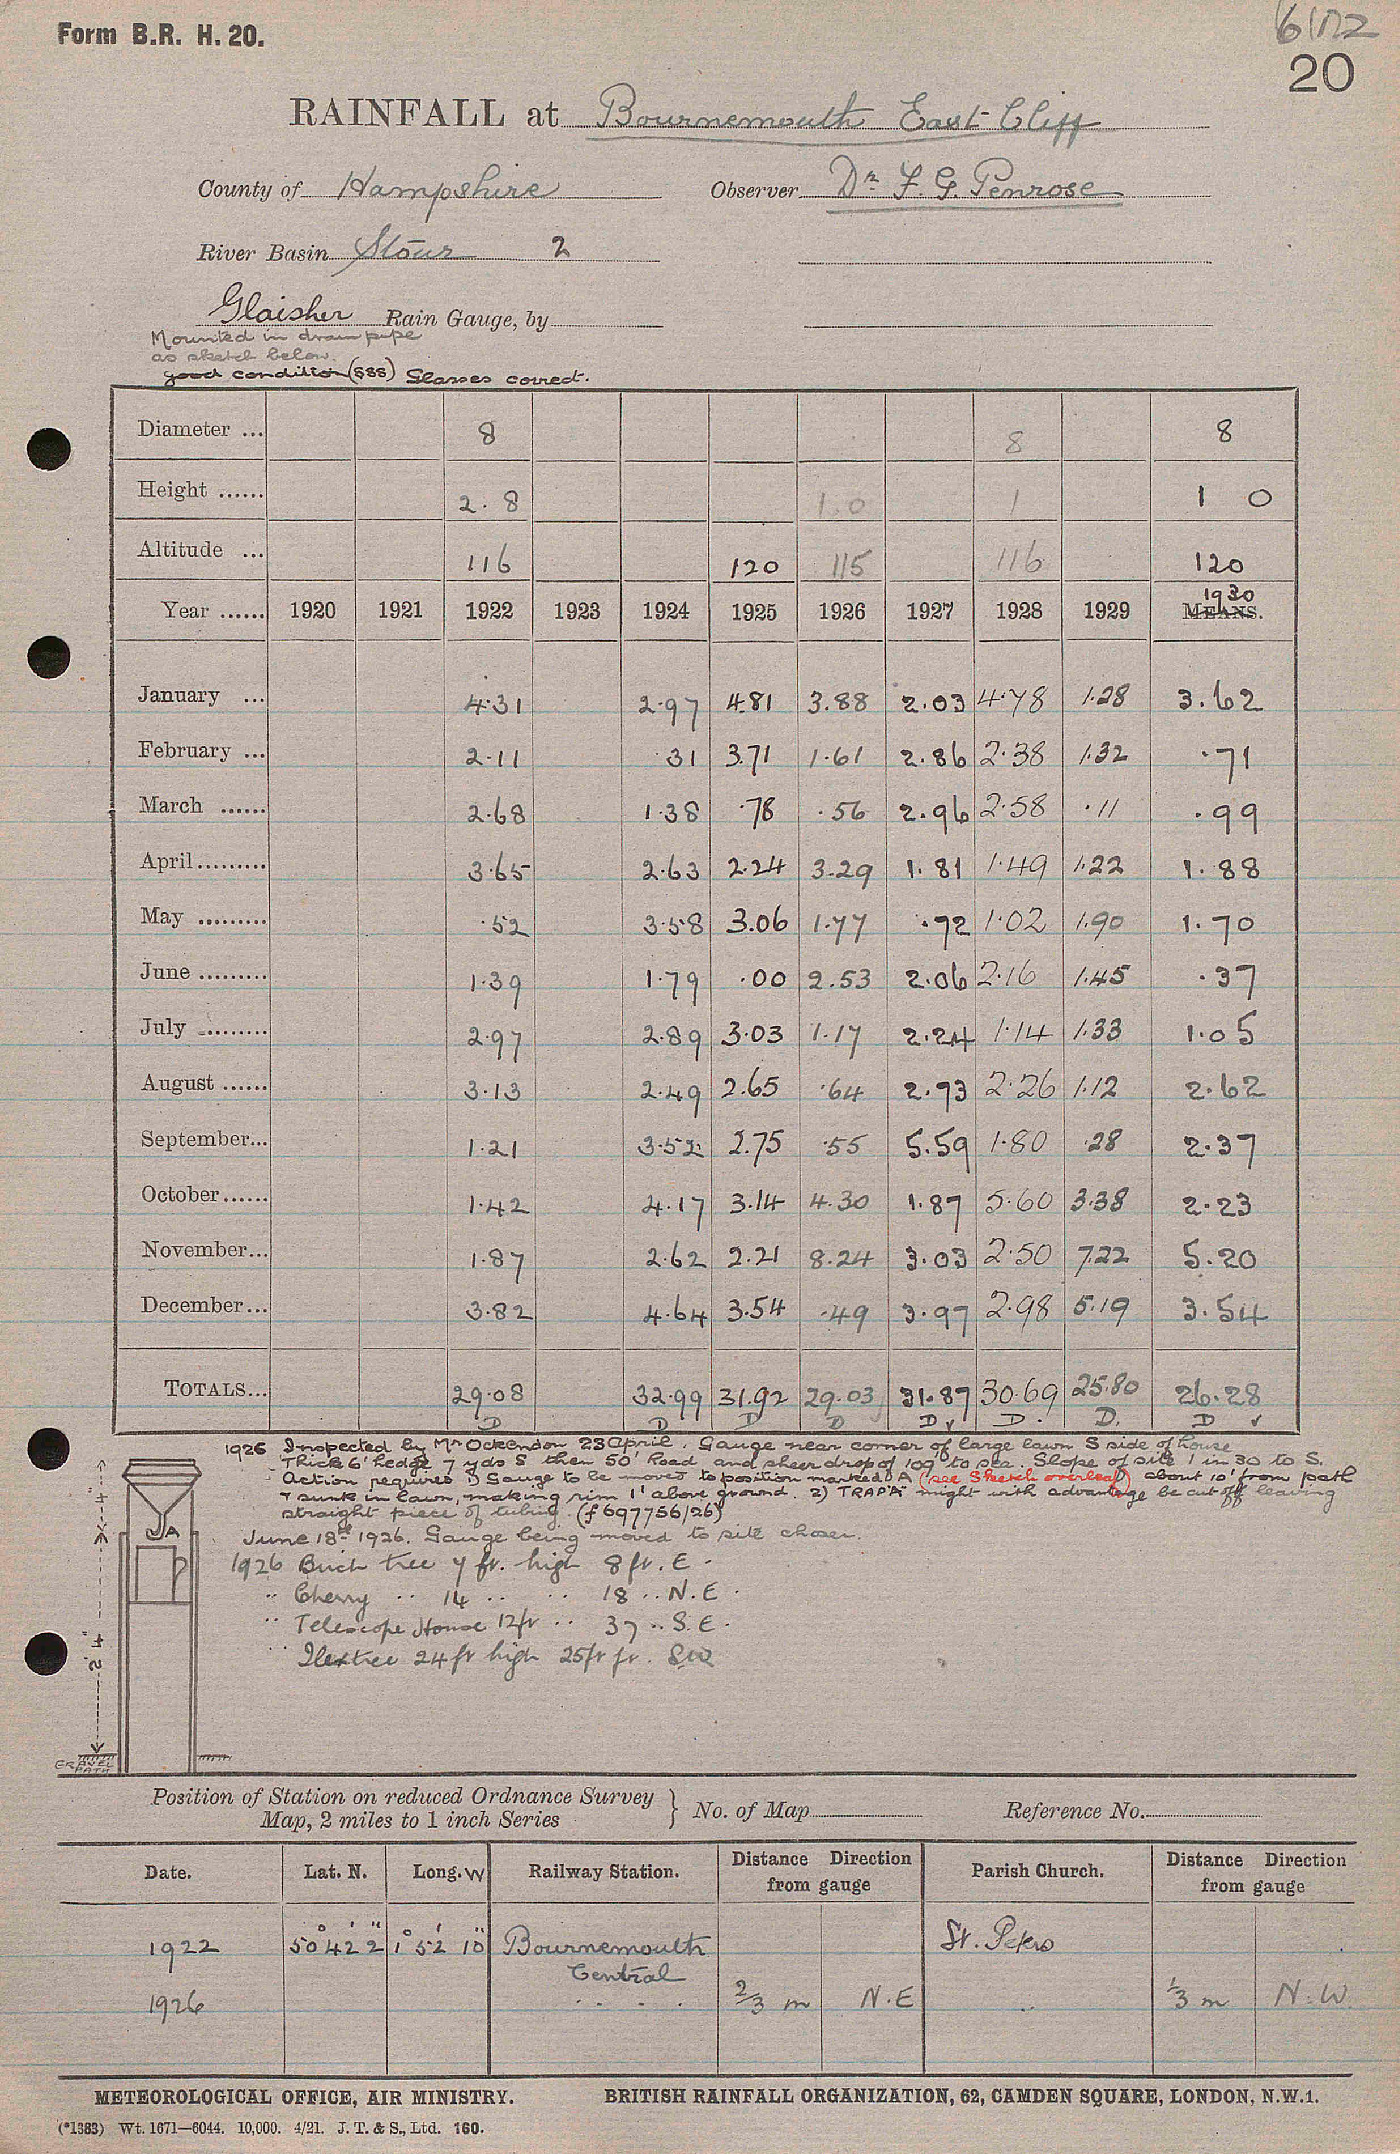 Form B.R. H. 20.
20
RAINFALL at Bournemouth East Cliff
County of Hampshire Observer Dr. F. G. Penrose
River Basin Stour 2
Glaisher Rain Gauge, by
Mounted in drain pipe
as sketch below.
good condition (SSS) Glasses correct.
Diameter ... 8 8 8
Height ...... 2.8 1.0 1 1 0
Altitude ... 116 120 115 116 120
Year ...... 1920 1921 1922 1923 1924 1925 1926 1927 1928 1929 MEANS. 1930
January ... 4.31 2.97 4.81 3.88 2.03 4.78 1.28 3.62
February ... 2.11 31 3.71 1.61 2.86 2.38 1.32 .71
March ...... 2.68 1.38 .78 .56 2.96 2.58 .11 .99
April......... 3.65 2.63 2.24 3.29 1.81 1.49 1.22 1.88
May ......... .52 3.58 3.06 1.77 .72 1.02 1.90 1.70
June ......... 1.39 1.79 .00 2.53 2.06 2.16 1.45 .37
July ......... 2.97 2.89 3.03 1.17 2.24 1.14 1.33 1.05
August ...... 3.13 2.49 2.65 .64 2.73 2.26 1.12 2.62
September... 1.21 3.52 2.75 .55 5.59 1.80 .28 2.37
October...... 1.42 4.17 3.14 4.30 1.87 5.60 3.38 2.23
November... 1.87 2.62 2.21 8.24 3.03 2.50 7.22 5.20
December... 3.82 4.64 3.54 .49 3.97 2.98 5.19 3.54
TOTALS... 29.08 32.99 31.92 29.03 31.87 30.69 25.80 26.28
D D D D D ✓ D. D. D ✓
1926 Inspected by Mr Ockendon 23 April. Gauge near corner of large lawn S side of house
Thick 6' hedge 7 yds S then 50' Road and sheer drop of 109' to sea. Slope of site 1 in 30 to S.
Action required 1) Gauge to be moved to position marked A (see Sketch overleaf) about 10' from path
+ sunk in lawn, making rim 1' above ground. 2) TRAP "A" might with advantage be cut off leaving
straight piece of tubing. (f 697756/26)
June 18th 1926. Gauge being moved to site chosen.
1926 Birch tree 7 ft. high 8 ft. E.
" Cherry " 14 " " 18 " N.E.
" Telescope House 12 ft " 37 " S.E.
" Ilex tree 24 ft high 25 ft fr. SW
A
2' 4"
GRAVEL PATH
Position of Station on reduced Ordnance Survey
Map, 2 miles to 1 inch Series } No. of Map Reference No.
Date. Lat. N. Long. W Railway Station. Distance Direction from gauge Parish Church. Distance Direction from gauge
1922 50° 42' 2" 1° 52' 10" Bournemouth Central St. Peters
1926 . . . . 2/3 m N.E .. 1/3 m N.W.
METEOROLOGICAL OFFICE, AIR MINISTRY. BRITISH RAINFALL ORGANIZATION, 62, CAMDEN SQUARE, LONDON, N.W.1.
(*1383) Wt. 1671—6044. 10,000. 4/21. J. T. & S., Ltd. 160.